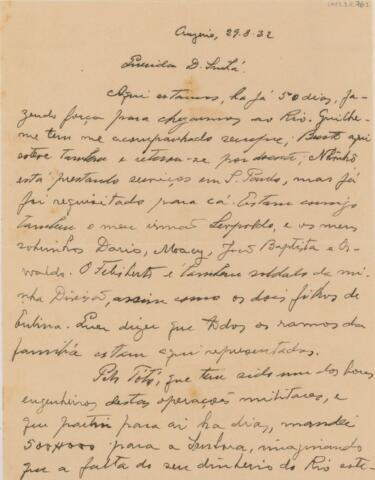 Cruzeiro, 29.8.32
Querida D. Sinhá.
Aqui estamos, ha já 50 dias, fa-
zendo força para chegarmos ao Rio. Guilher-
me tem me acompanhado sempre; aqui
esteve tambem e retirou-se por doente; Nhonhô
está prestando serviços em S. Paulo, mas já
foi requisitado para cá. Estam comigo
tambem o meu irmão Leopoldo, e os meus
sobrinhos Dario, Moacy, José Baptista e Os-
waldo. O Felisberto é tambem soldado da mi-
nha Divisão, assim como os dois filhos de
Eulina. Quer dizer que todos os ramos da
familia estam aqui representados.
Pelo Totó, que tem sido um dos bons
engenheiros destas operações militares, e
que partiu para ai ha dias, mandei
500$000 para a Senhora, imaginando
que a falta do seu dinheiro do Rio este-